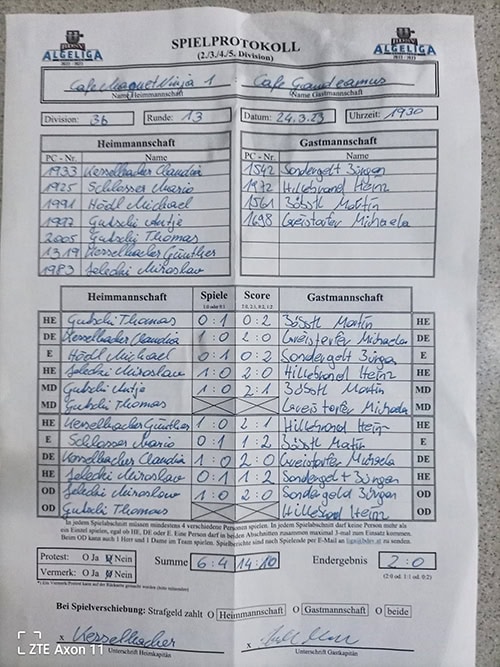 ALGELIGA
SPIELPROTOKOLL
ALGELIGA
(2./3./4./5. Division)
Cafe Magnet Ninja 1 Cafe Gaudeamus
Name Heimmannschaft Name Gastmannschaft
Division: 3b Runde: 13 Datum: 24.3.23 Uhrzeit: 1930
Heimmannschaft Gastmannschaft
PC - Nr. Name PC - Nr. Name
1933 Kesselbacher Claudia 1542 Sondergelt Jürgen
1925 Schlosser Mario 1972 Hillebrand Heinz
1991 Hödl Michael 1561 Bäbstl Martin
1997 Gutschi Antje 1698 Gweistorfer Michaela
2005 Gutschi Thomas
1319 Kesselbacher Günther
1983 Jeledic Miroslav
Heimmannschaft Spiele Score Gastmannschaft
1:0 oder 0:1 2:0, 2:1, 0:2, 1:2
HE Gutschi Thomas 0:1 0:2 Bäbstl Martin HE
DE Kesselbacher Claudia 1:0 2:0 Gweistorfer Michaela DE
E Hödl Michael 0:1 0:2 Sondergelt Jürgen E
HE Jeledic Miroslav 1:0 2:0 Hillebrand Heinz HE
MD Gutschi Antje 1:0 2:1 Bäbstl Martin MD
MD Gutschi Thomas Gweistorfer Michaela MD
HE Kesselbacher Günther 1:0 2:1 Hillebrand Heinz HE
E Schlosser Mario 0:1 1:2 Bäbstl Martin E
DE Kesselbacher Claudia 1:0 2:0 Gweistorfer Michaela DE
HE Jeledic Miroslav 0:1 1:2 Sondergelt Jürgen HE
OD Jeledic Miroslav 1:0 2:0 Sondergeld Jürgen OD
OD Gutschi Thomas Hillebrand Heinz OD
In jedem Spielabschnitt müssen mindestens 4 verschiedene Personen spielen. In jedem Spielabschnitt darf keine Person mehr als
ein Einzel spielen, egal ob HE, DE oder E. Eine Person darf in beiden Abschnitten zusammen maximal 3-mal zum Einsatz kommen.
Beim OD kann auch 1 Herr und 1 Dame im Team spielen. Spielberichte sind nach Spielende per E-Mail an liga@bdev.at zu senden
Protest: O Ja O Nein Summe 6:4 14:10 Endergebnis 2:0
Vermerk: O Ja O Nein (2:0 od. 1:1 od. 0:2)
Bei Spielverschiebung: Strafgeld zahlt O Heimmannschaft O Gastmannschaft O beide
x Kesselbacher x
Unterschrift Heimkapitän Unterschrift Gastkapitän
ZTE Axon 11